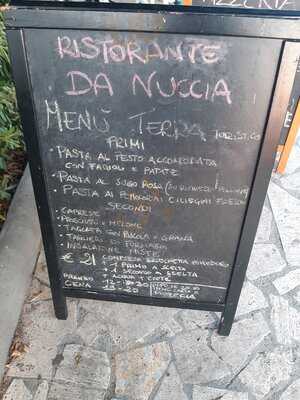 RISTORANTE
DA NUCCIA
MENÙ TERRA TURISTICO
PRIMI
• PASTA AL TESTO ACCOMODATA
CON FAGIOLI E PATATE
• PASTA AL SUGO ROSA
• PASTA AI POMODORI CILIEGINI FRESCHI
SECONDI
• CAPRESE
• PROSCIUTTO E MELONE
• TAGLIATA CON RUCOLA E GRANA
• TAGLIERE DI FORMAGGI
• INSALATONE MISTE
€ 21 COMPRESA BRUSCHETTA POMODORO
+ 1 PRIMO A SCELTA
+ 1 SECONDO A SCELTA
+ ACQUA 1
PRANZO
CENA